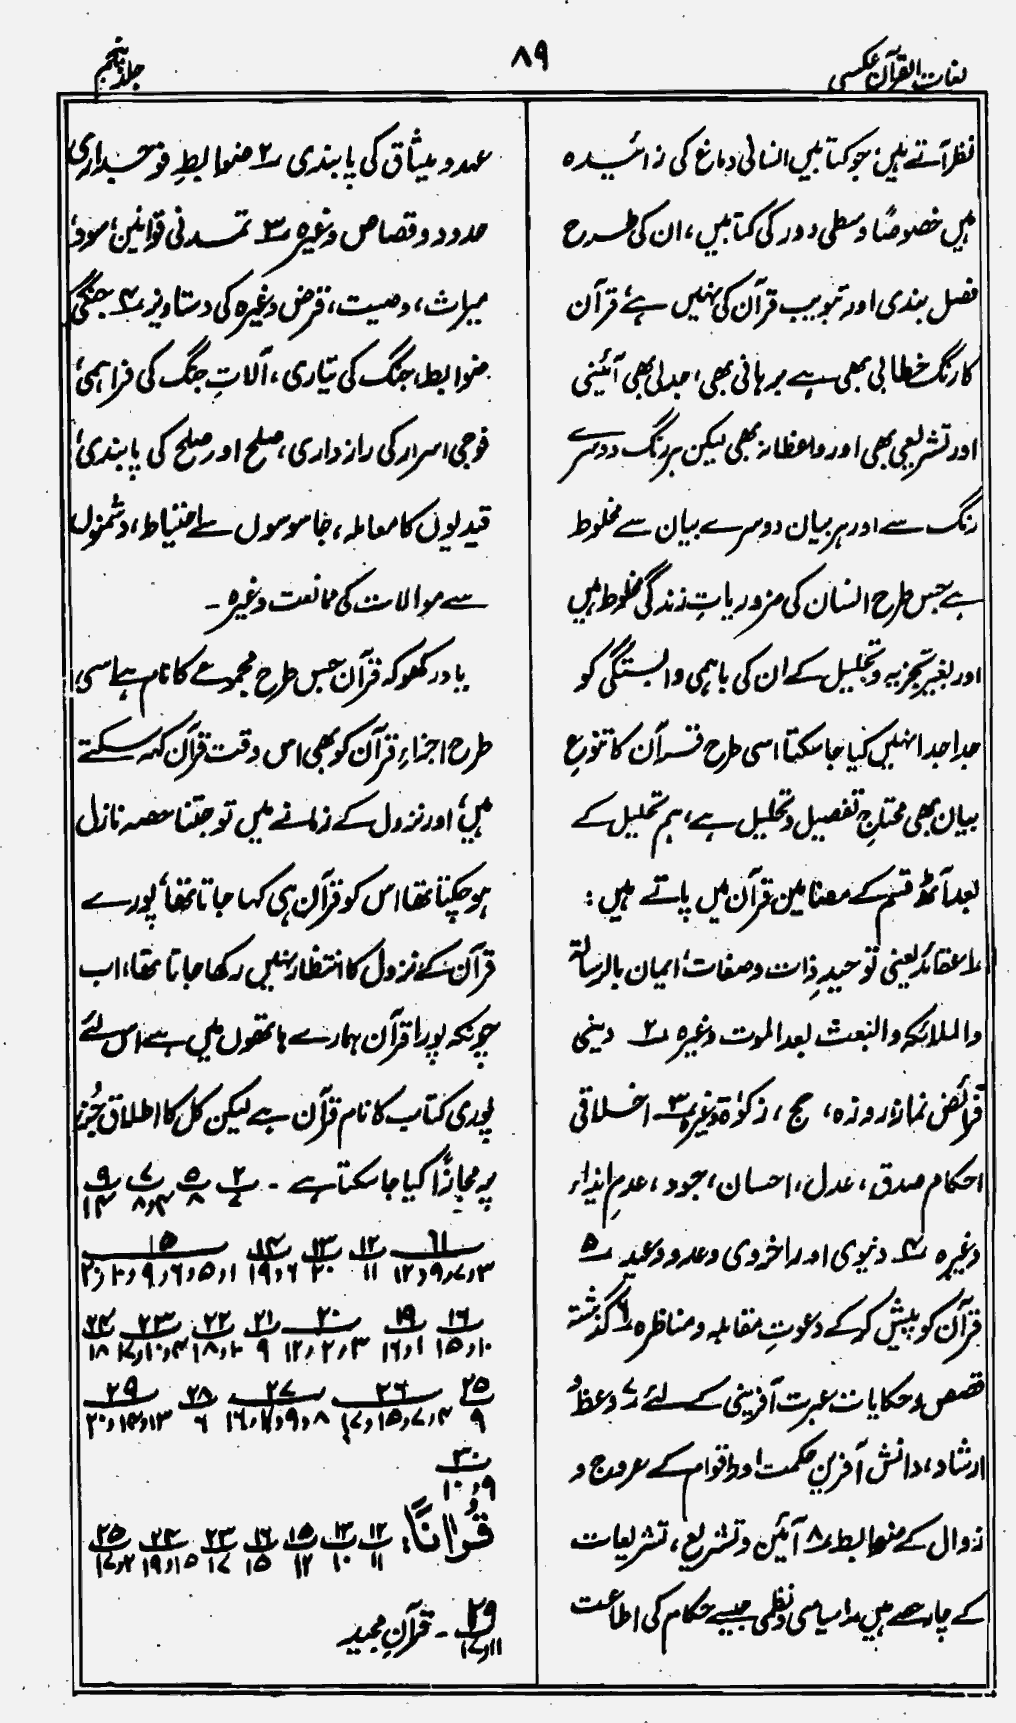 لغات القرآن عکسی
۸۹
جلد پنجم
نظر آتے ہیں، جو کتابیں انسانی دماغ کی زائیدہ
ہیں خصوصًا وسطی دور کی کتابیں، ان کی طرح
فصل بندی اور تبویب قرآن کی نہیں ہے، قرآن
کا رنگ خطابی بھی ہے برہانی بھی، جدلی بھی آئینی
اور تشریعی بھی اور واعظانہ بھی لیکن ہر رنگ دوسرے
رنگ سے اور ہر بیان دوسرے بیان سے مخلوط
ہے جس طرح انسان کی ضروریاتِ زندگی مخلوط ہیں
اور بغیر تجزیہ و تحلیل کے ان کی باہمی وابستگی کو
جدا جدا نہیں کیا جا سکتا اسی طرح قرآن کا تنوعِ
بیان بھی محتاجِ تفصیل و تحلیل ہے، ہم تحلیل کے
بعد آٹھ قسم کے مضامین قرآن میں پاتے ہیں:
۱ عقائد یعنی توحیدِ ذات و صفات، ایمان بالرسالۃ
والملائکہ والبعث بعد الموت وغیرہ ۲ دینی
فرائض نماز، روزہ، حج، زکوٰۃ وغیرہ ۳ اخلاقی
احکام صدق، عدل، احسان، جود، عدمِ ایذاء
وغیرہ ۴ دنیوی اور اخروی وعد و وعید ۵
قرآن کو پیش کر کے دعوتِ مقابلہ و مناظرہ ۶ گذشتہ
قصص و حکایات عبرت آفرینی کے لئے ۷ وعظ و
ارشاد، دانش آفریں حکمت اور اقوام کے عروج و
زوال کے ضوابط ۸ آئین و تشریع، تشریعات
کے چار حصے ہیں ۱ سیاسی و نظمی جیسے حکام کی اطاعت
عہد و میثاق کی پابندی ۲ ضوابطِ فوجداری
حدود و قصاص وغیرہ ۳ تمدنی قوانین، سود،
میراث، وصیت، قرض وغیرہ کی دستاویز ۴ جنگی
ضوابط، جنگ کی تیاری، آلاتِ جنگ کی فراہمی،
فوجی اسرار کی رازداری، صلح اور صلح کی پابندی،
قیدیوں کا معاملہ، جاسوسوں سے احتیاط، دشمنوں
سے موالات کی ممانعت وغیرہ۔
یاد رکھو کہ قرآن جس طرح مجموعے کا نام ہے اسی
طرح اجزاءِ قرآن کو بھی اس وقت قرآن کہہ سکتے
ہیں، اور نزول کے زمانے میں تو جتنا حصہ نازل
ہو چکتا تھا اس کو قرآن ہی کہا جاتا تھا، پورے
قرآن کے نزول کا انتظار نہیں رکھا جاتا تھا، اب
چونکہ پورا قرآن ہمارے ہاتھوں میں ہے اس لئے
پوری کتاب کا نام قرآن ہے لیکن کل کا اطلاق جُز
پر مجازًا کیا جا سکتا ہے۔ ۲/۷ ۵/۸ ۷/۸و۱۴ ۹/۱۴
۱۱/۳و۷و۹و۱۲ ۱۲/۱۱ ۱۳/۲۰ ۱۴/۶و۱۹ ۱۵/۱و۵و۶و۹و۱۰و۲۰
۱۶/۱۰و۱۵ ۱۹/۱و۱۶ ۲۰/۳و۲و۱۲ ۲۱/۹ ۲۲/۲و۱۸ ۲۳/۴و۱۰و۱۷ ۲۴/۱۸
۲۵/۹ ۲۶/۴و۷و۱۵و۱۷ ۲۷/۸و۹و۱۲و۱۶ ۲۸/۶ ۲۹/۱۳و۱۴و۲۰
۳۰/۹و۱۰
قُرْاٰنًا: ۱۲/۱۱ ۱۳/۱۰ ۱۵/۱۲ ۱۶/۱۵ ۲۳/۱۷ ۲۴/۱۵و۱۹ ۲۵/۲و۱۷
۲۹/۱۱و۱۷ ۔ قرآنِ مجید